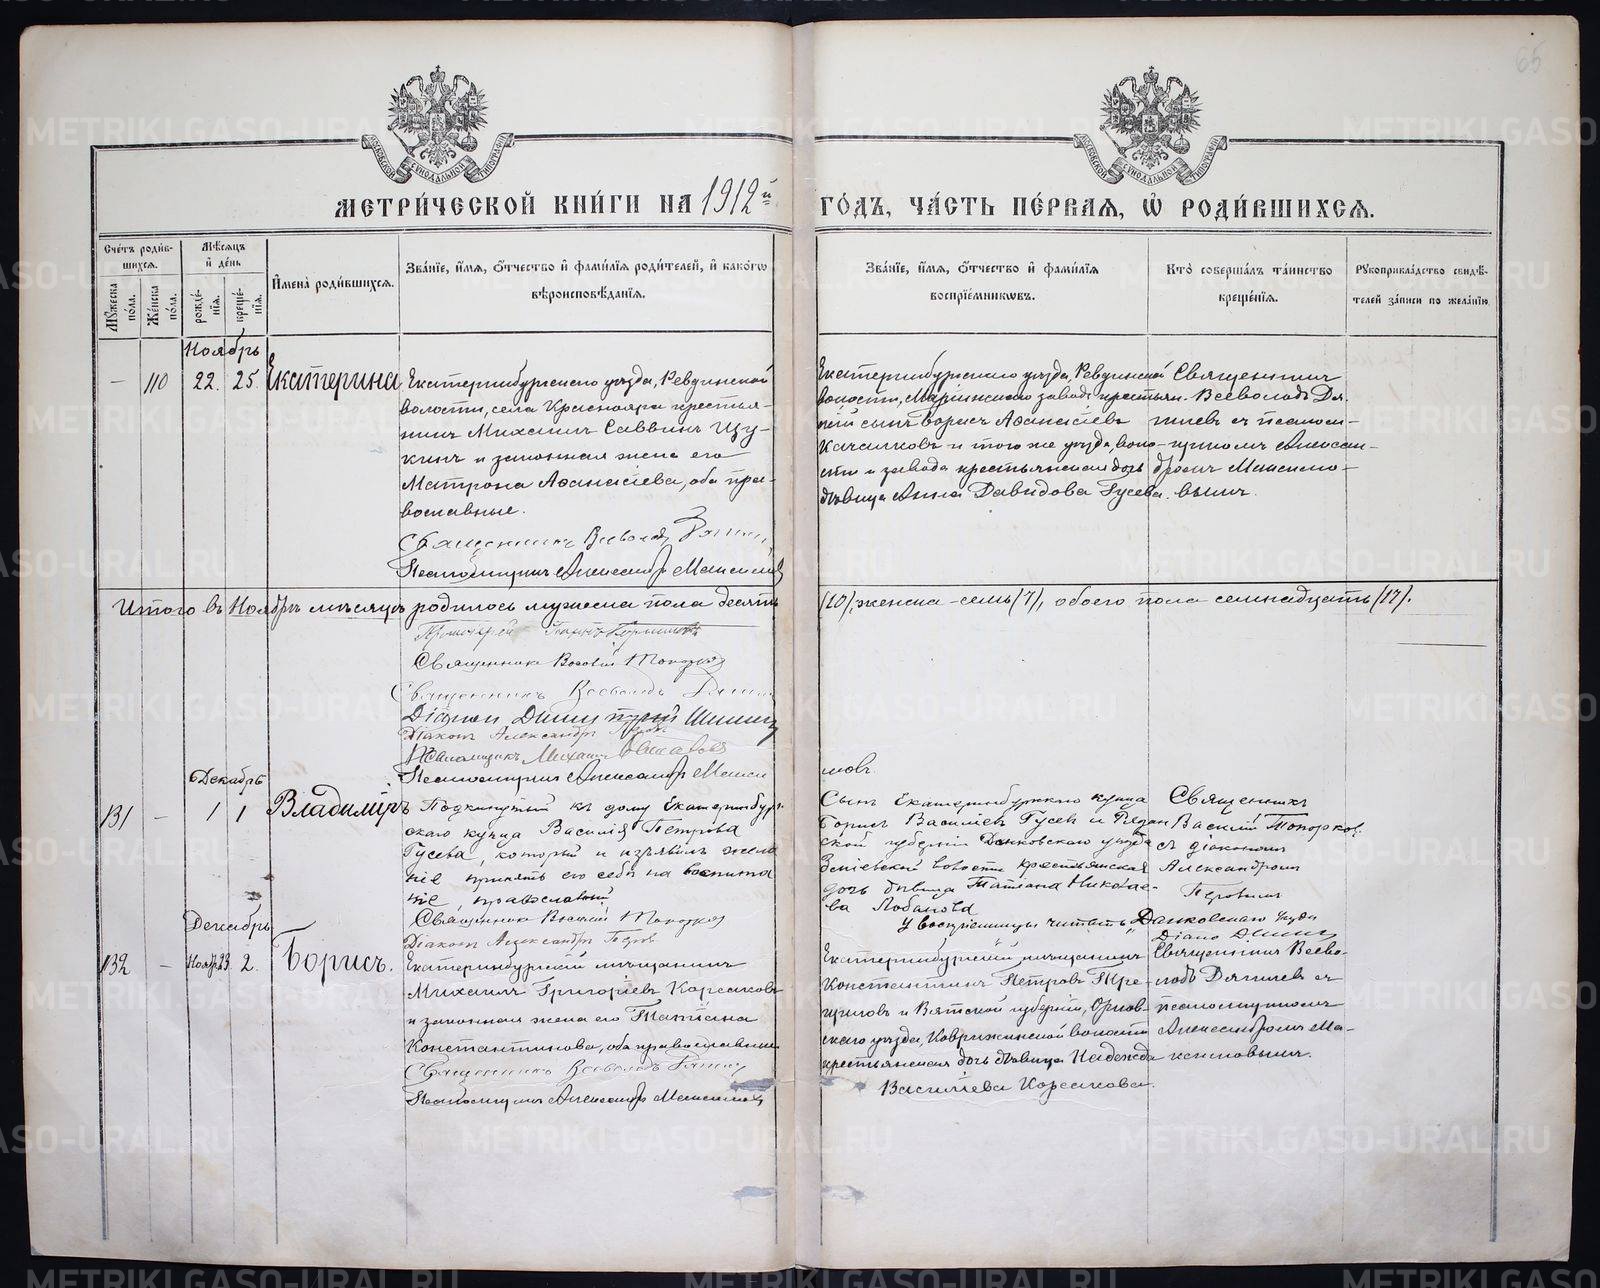 65
МОСКОВСКОЙ СѴНОДАЛЬНОЙ ТИПОГРАФІИ
МОСКОВСКОЙ СѴНОДАЛЬНОЙ ТИПОГРАФІИ
МЕТРИ́ЧЕСКОЙ КНИ́ГИ НА 1912й
ГО́ДЪ, ЧА́СТЬ ПЕ́РВАЯ, Ѡ҆ РОДИ́ВШИХСЯ.
Сче́тъ роди́в-
шихся.
Мꙋ́жеска
по́ла.
Же́нска
по́ла.
Мѣ́сяцъ
и҆ де́нь
рожде́-
нїѧ.
креще́-
нїѧ.
И҆мена̀ роди́вшихся.
Зва́нїе, и҆́мя, ѻ҆́тчество и҆ фами́лїя роди́телей, и҆ како́гѡ
вѣроисповѣ́данїѧ.
Зва́нїе, и҆́мя, ѻ҆́тчество и҆ фами́лїя
воспрїе́мникѡвъ.
Кто̀ соверша́лъ та́инство
креще́нїѧ.
Рꙋкоприкла́дство свидѣ́-
телей за́писи по жела́нїю
Ноябрь
— 110 22. 25. Екатерина
Екатеринбургскаго уѣзда, Ревдинской
волости, села Краснояра крестья-
нинъ Михаилъ Саввинъ Щу-
кинъ и законная жена его
Матрона Аѳанасіева, оба пра-
вославные.
Священникъ Всеволодъ
Псаломщикъ Александръ Максимов
Екатеринбургскаго уѣзда, Ревдинской
волости, Маріинскаго завода крестьян-
скій сынъ Борисъ Аѳанасіевъ
Качалковъ и того же уѣзда, воло-
сти и завода крестьянская дочь
дѣвица Анна Давидова Гусева.
Священникъ
Всеволодъ Дя-
гилевъ съ псалом-
щикомъ Алексан-
дромъ Максимо-
вымъ.
Итого въ Ноябрѣ мѣсяцѣ родилось мужеска пола десять (10), женска - семь (7), обоего пола семнадцать (17).
Протоіерей
Священникъ Василій Топорков
Священникъ Всеволодъ
Діаконъ Димитрій Шишев
Діаконъ Александръ Перов
Псаломщикъ Михаилъ
Псаломщикъ Александръ Макси
мовъ
Декабрь
131 — 1 1 Владиміръ
Подкинутый къ дому Екатеринбург-
скаго купца Василія Петрова
Гусева, который и изъявилъ жела
ніе принять его себѣ на воспита
ніе, православный
Священникъ Василій Топорков
Діаконъ Александръ Перов
Сынъ Екатеринбургскаго купца
Борисъ Васильевъ Гусевъ и Рязан
ской губерніи Данковскаго уѣзда
Змиевской волости крестьянская
дочь дѣвица Татіана Николае-
ва Лобанова
У воспріемницы читать „Данковскаго уѣзда
Діако
Священникъ
Василій Топорков
съ діакономъ
Александромъ
Перовымъ
Декабрь
132 — Ноябр. 23 2. Борисъ.
Екатеринбургскій мѣщанинъ
Михаилъ Григоріевъ Корсаковъ
и законная жена его Татіана
Константинова, оба православные
Священникъ Всеволодъ
Псаломщикъ Александръ Максимов
Екатеринбургскій мѣщанинъ
Константинъ Петровъ Тре-
щиловъ и Вятской губерніи, Орлов-
скаго уѣзда, волости
крестьянская дочь дѣвица Надежда
Василіева Корсакова.
Священникъ Всево-
лодъ Дягилевъ съ
псаломщикомъ
Александромъ Ма-
ксимовымъ.
METRIKI.GASO-URAL.RU